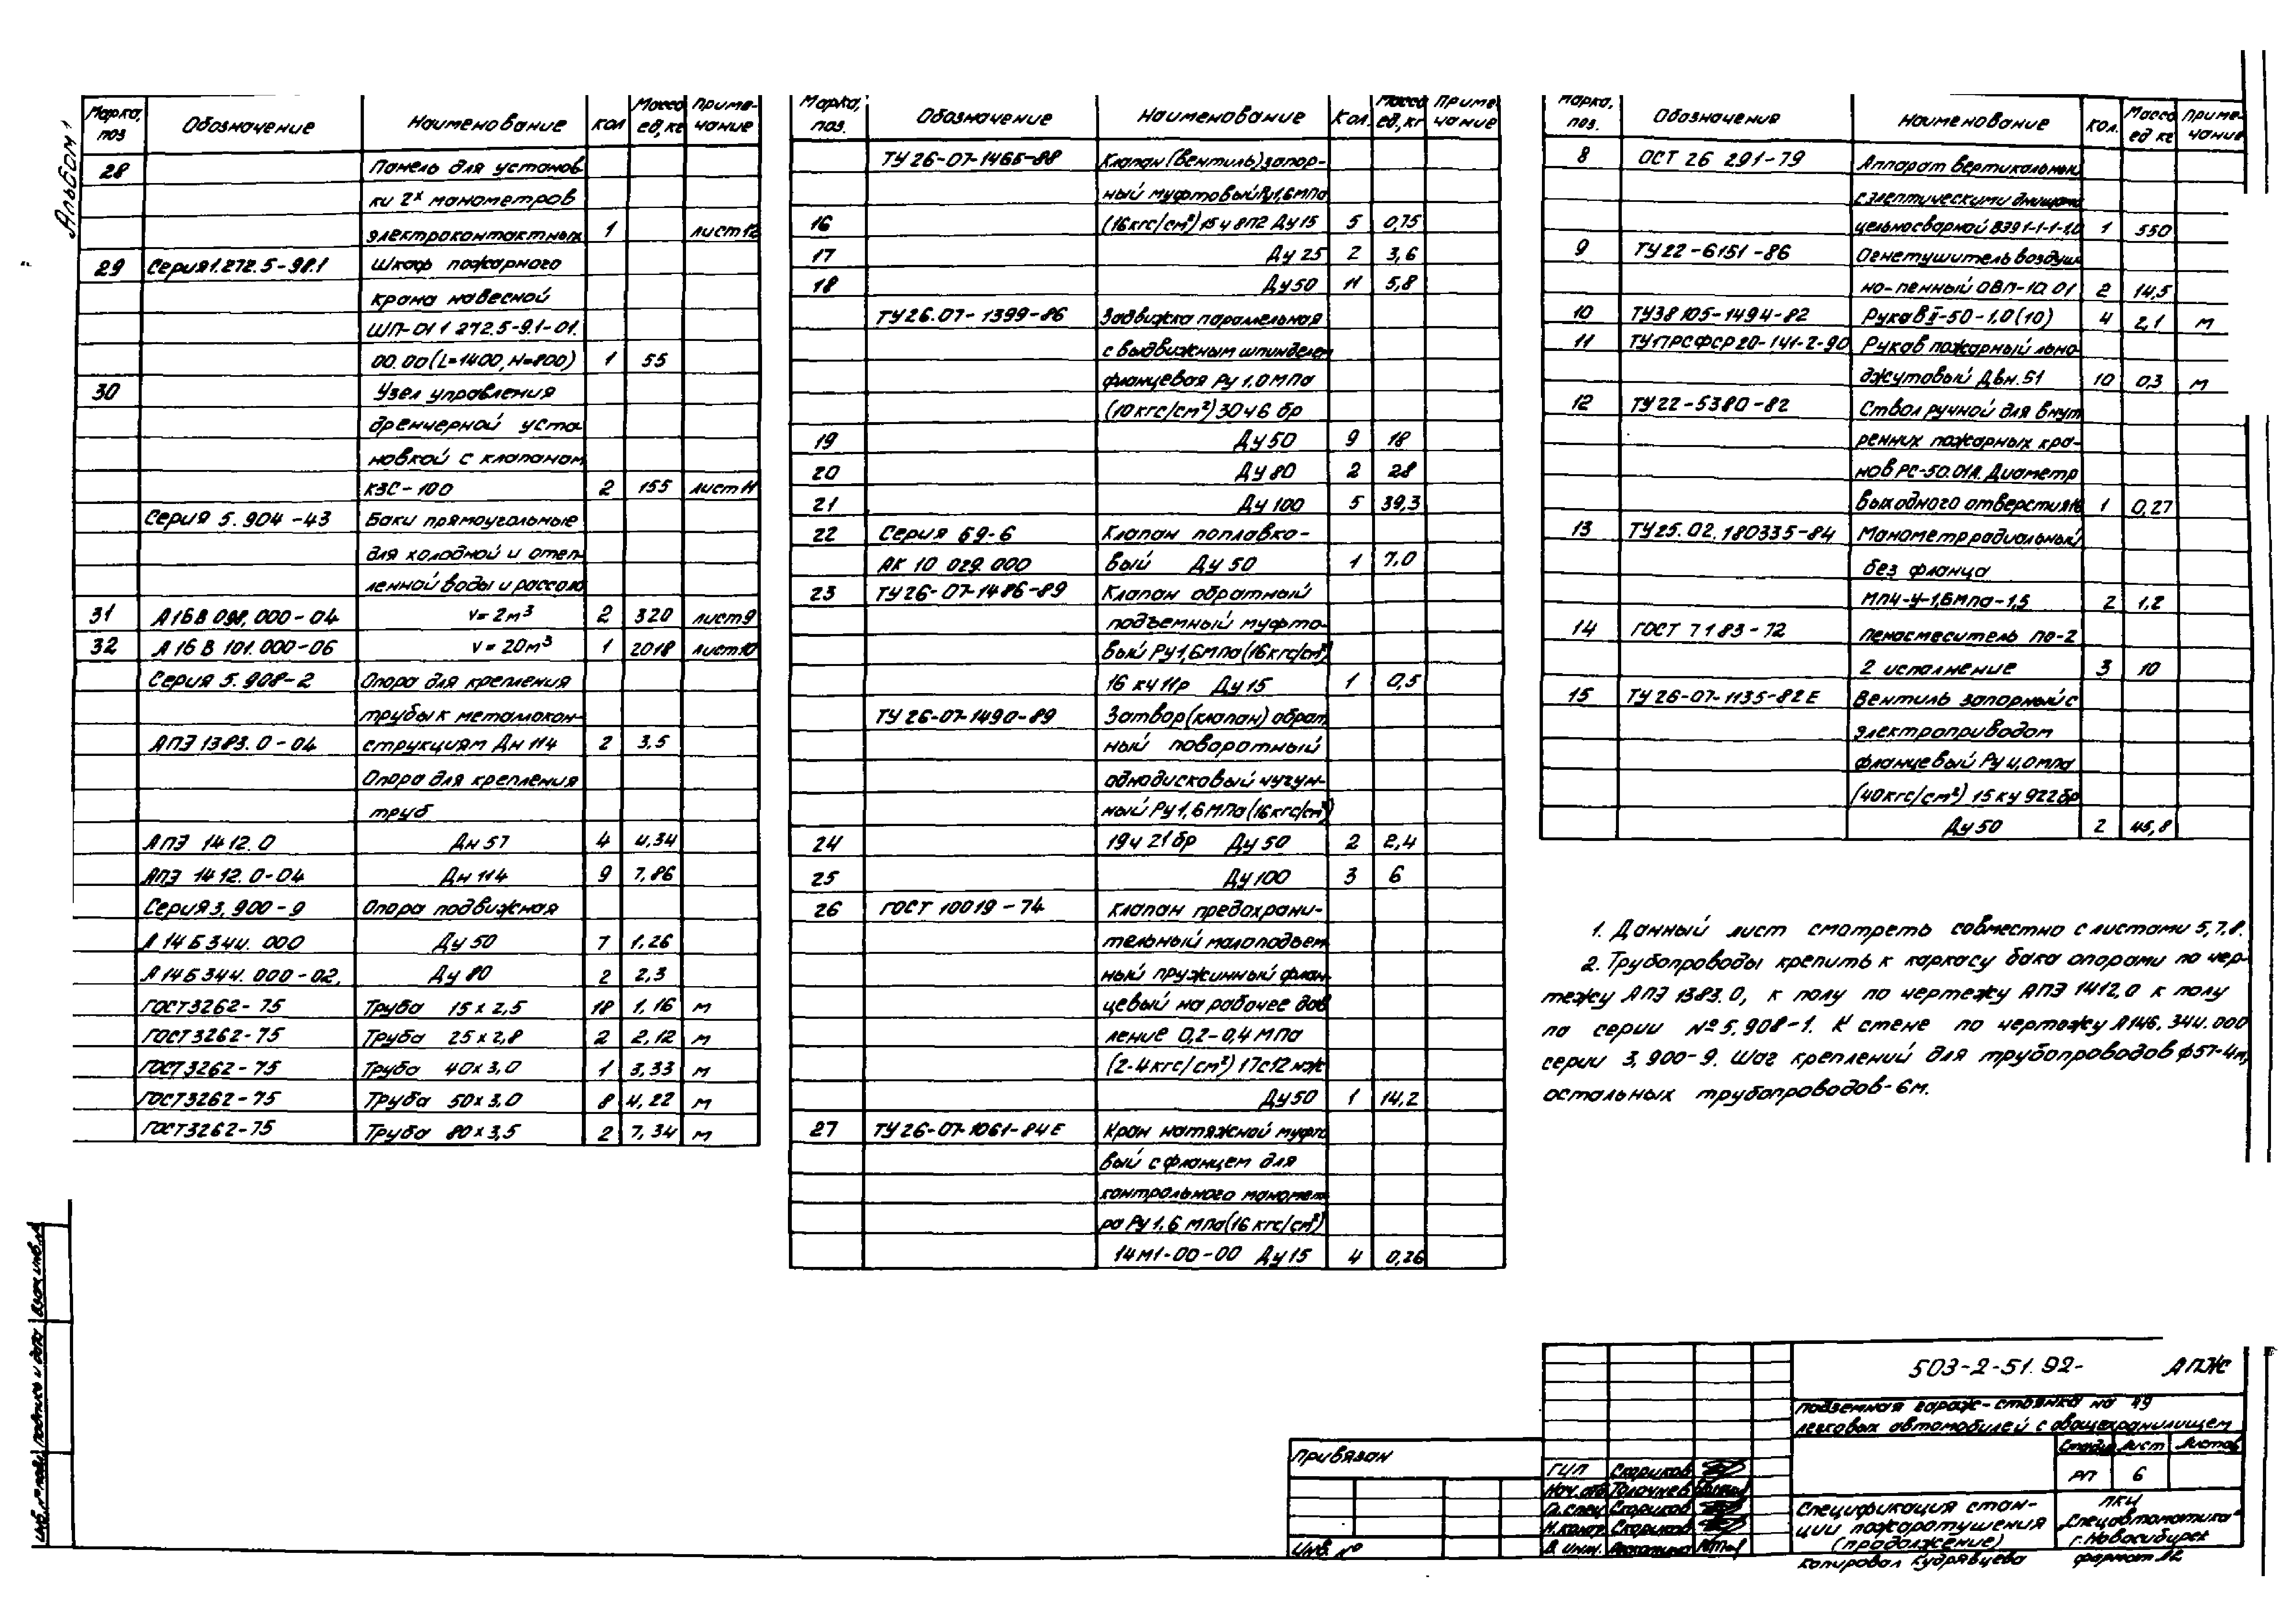 Альбом 1
Марка, поз Обозначение Наименование кол Масса ед, кг Приме-чание
28 Панель для установ
ки 2х манометров
электроконтактных 1 лист 12
29 Серия 1.272.5-98.1 Шкаф пожарного
крана навесной
ШП-01 1 272.5-9.1-01.
00.00 (L=1400, H=800) 1 55
30 Узел управления
дренчерной уста
новкой с клапаном
КЗС-100 2 155 лист 11
Серия 5.904-43 Баки прямоугольные
для холодной и отеп-
ленной воды и рассола
31 А16В 098.000-04 v=2м³ 2 320 лист 9
32 А16В 101.000-06 v=20м³ 1 2018 лист 10
Серия 5.908-2 Опора для крепления
трубы к металлокон-
АПЭ 1383.0-04 струкциям Дн 114 2 3,5
Опора для крепления
труб
АПЭ 1412.0 Дн 57 4 4,34
АПЭ 1412.0-04 Дн 114 9 7,86
Серия 3.900-9 Опора подвижная
А14Б344.000 Ду 50 7 1,26
А14Б344.000-02. Ду 80 2 2,3
ГОСТ 3262-75 Труба 15x2,5 18 1,16 м
ГОСТ 3262-75 Труба 25x2,8 2 2,12 м
ГОСТ 3262-75 Труба 40x3,0 1 3,33 м
ГОСТ 3262-75 Труба 50x3,0 8 4,22 м
ГОСТ 3262-75 Труба 80x3,5 2 7,34 м
Марка, поз. Обозначение Наименование Кол. Масса ед, кг Приме-чание
ТУ 26-07-1465-88 Клапан (вентиль) запор-
ный муфтовый Ру1,6мпа
16 (16кгс/см²) 15ч 8П2 Ду15 5 0,75
17 Ду 25 2 3,6
18 Ду 50 11 5,8
ТУ 26.07-1399-86 Задвижка параллельная
с выдвижным шпинделем
фланцевая Ру 1,0 МПа
(10кгс/см²) 30ч6 бр
19 Ду 50 9 18
20 Ду 80 2 28
21 Ду 100 5 39,3
22 Серия Б9-6 Клапан поплавко-
АК 10 029.000 вый Ду 50 1 7,0
23 ТУ 26-07-1486-89 Клапан обратный
подъемный муфто-
вый Ру1,6мпа (16кгс/см²)
16 кч 11р Ду 15 1 0,5
ТУ 26-07-1490-89 Затвор (клапан) обрат
ный поворотный
однодисковый чугун-
ный Ру1,6 МПа (16кгс/см²)
24 19ч 21бр Ду 50 2 2,4
25 Ду 100 3 6
26 ГОСТ 10019-74 Клапан предохрани-
тельный малоподъем
ный пружинный флан-
цевый на рабочее дав
ление 0,2-0,4 МПа
(2-4кгс/см²) 17с12нж
Ду 50 1 14,2
27 ТУ 26-07-1061-84Е Кран натяжной муфто
вый с фланцем для
контрольного маномет
ра Ру 1,6 мпа (16 кгс/см²)
14М1-00-00 Ду 15 4 0,26
Марка, поз. Обозначения Наименование кол. Масса ед кг Приме-чание
8 ОСТ 26 291-79 Аппарат вертикальный
с элептическими днищами
цельносварной ВЭЭ1-1-1-1,0 1 550
9 ТУ 22-6151-86 Огнетушитель воздуш
но-пенный ОВП-10.01 2 14,5
10 ТУ38 105-1494-82 Рукав II-50-1,0 (10) 4 2,1 м
11 ТУ17РСФСР 20-141-2-90 Рукав пожарный льно-
джутовый Двн. 51 10 0,3 м
12 ТУ 22-5380-82 Ствол ручной для внут
ренних пожарных кра-
нов РС-50.01А. Диаметр
выходного отверстия 1 0,27
13 ТУ 25.02.180335-84 Манометр радиальный
без фланца
МП4-У-1,6Мпа-1,5 2 1,2
14 ГОСТ 7183-72 Пеносмеситель ПО-2
2 исполнение 3 10
15 ТУ 26-07-1135-82Е Вентиль запорный с
электроприводом
фланцевый Ру 4,0мпа
(40кгс/см²) 15 кч 922бр
Ду 50 2 45,8
1. Данный лист смотреть совместно с листами 5,7,8.
2. Трубопроводы крепить к каркасу бака опорами по чер-
тежу АПЭ 1383.0, к полу по чертежу АПЭ 1412.0 к полу
по серии №5.908-1. К стене по чертежу А14Б.344.000
серии 3.900-9. Шаг креплений для трубопроводов ф57-4м,
остальных трубопроводов-6м.
Взам инв. №
Подпись и дата
Инв. № подл.
Привязан
Инв. №
ГИП Скориков
Нач. отд. Толочнев
Гл. спец Скориков
Н. контр. Скориков
В. инж.
503-2-51.92- АПЖ
подземная гараж-стоянка на 49
легковых автомобилей с овощехранилищем
Стадия Лист Листов
РП 6
Спецификация стан-
ции пожаротушения
(продолжение)
ПКИ
„Спецавтоматика"
г. Новосибирск
Копировал Кудрявцева формат А2